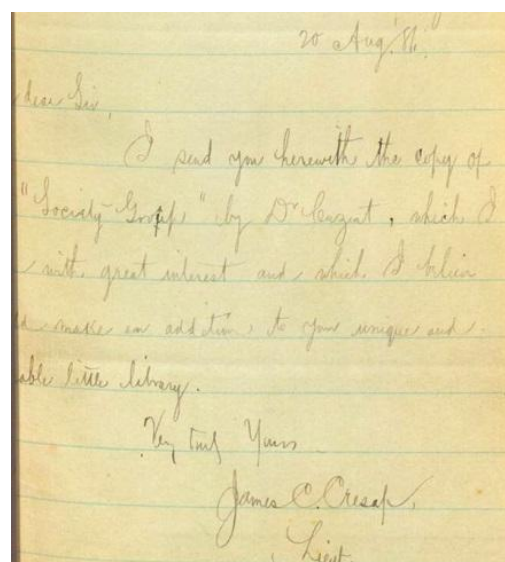 20 Aug. '81.
dear Sir,
I send you herewith the copy of
"Society Group" by Dr Cuzent, which I
with great interest and which I believ
make an addition to your unique and
able little library.
Very truly Yours
James C. Cresap,
Lieut.